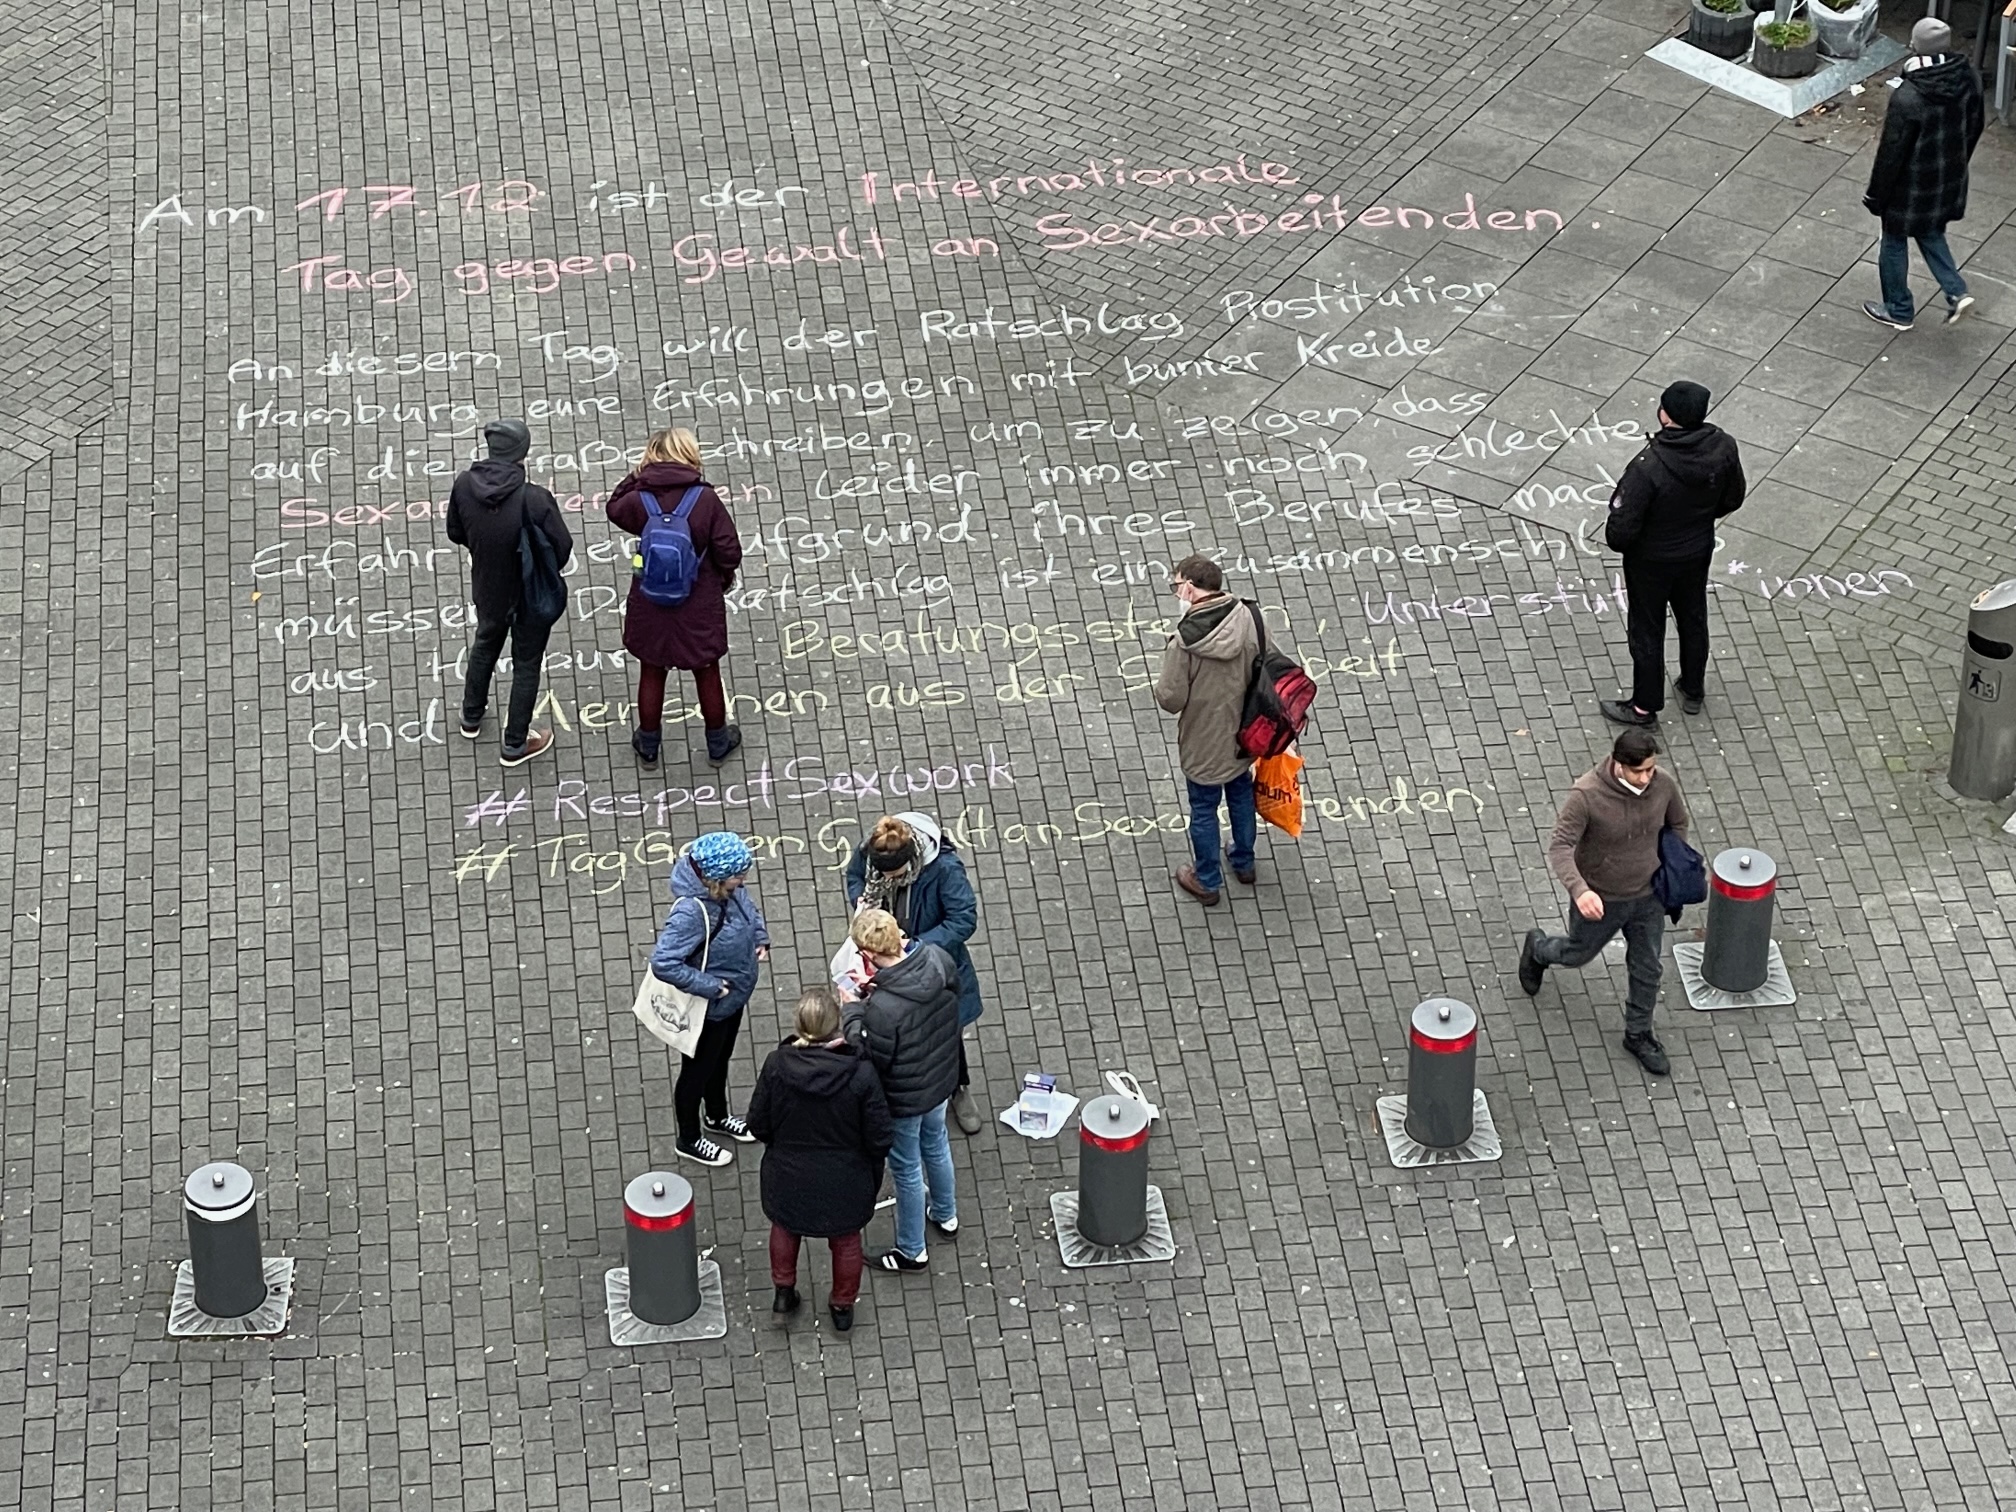 Am 17.12. ist der Internationale
Tag gegen Gewalt an Sexarbeitenden.
An diesem Tag will der Ratschlag Prostitution
Hamburg eure Erfahrungen mit bunter Kreide
auf die Straße schreiben, um zu zeigen, dass
Sexarbeitenden leider immer noch schlechte
Erfahrungen aufgrund ihres Berufes machen
müssen. Der Ratschlag ist ein Zusammenschluss
aus Hamburger Beratungsstellen, Unterstützer*innen
und Menschen aus der Sexarbeit.
#RespectSexwork
#TagGegenGewaltanSexarbeitenden